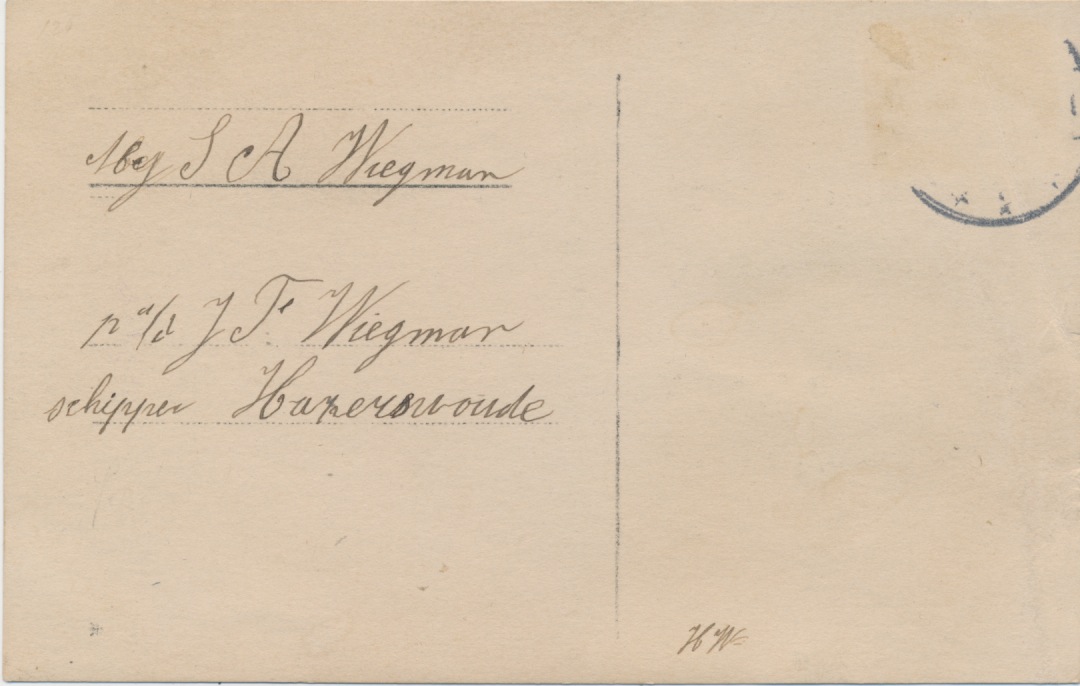 Mej S A Wiegman
p a/d J F Wiegman
schipper Hazerswoude
HW